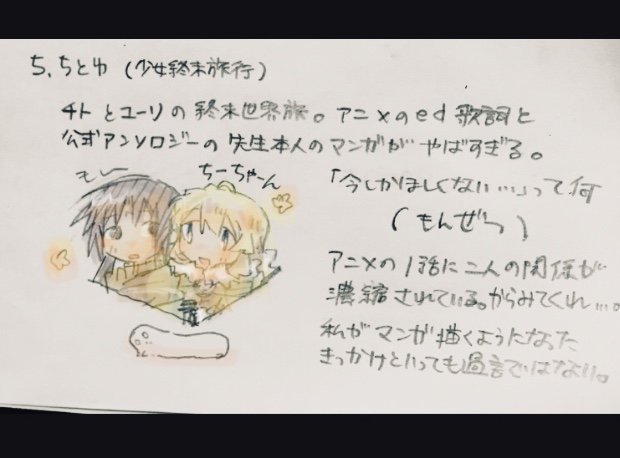 5、ちとゆ (少女終末旅行)
チトとユーリの終末世界旅。アニメのed歌詞と
公式アンソロジーの先生本人のマンガがやばすぎる。
もー
ちーちゃん
「今しかほしくない…」って何
(もんぜつ)
アニメの1話に二人の関係が
濃縮されている。からみてくれ…。
私がマンガ描くようになった
きっかけといっても過言ではない。